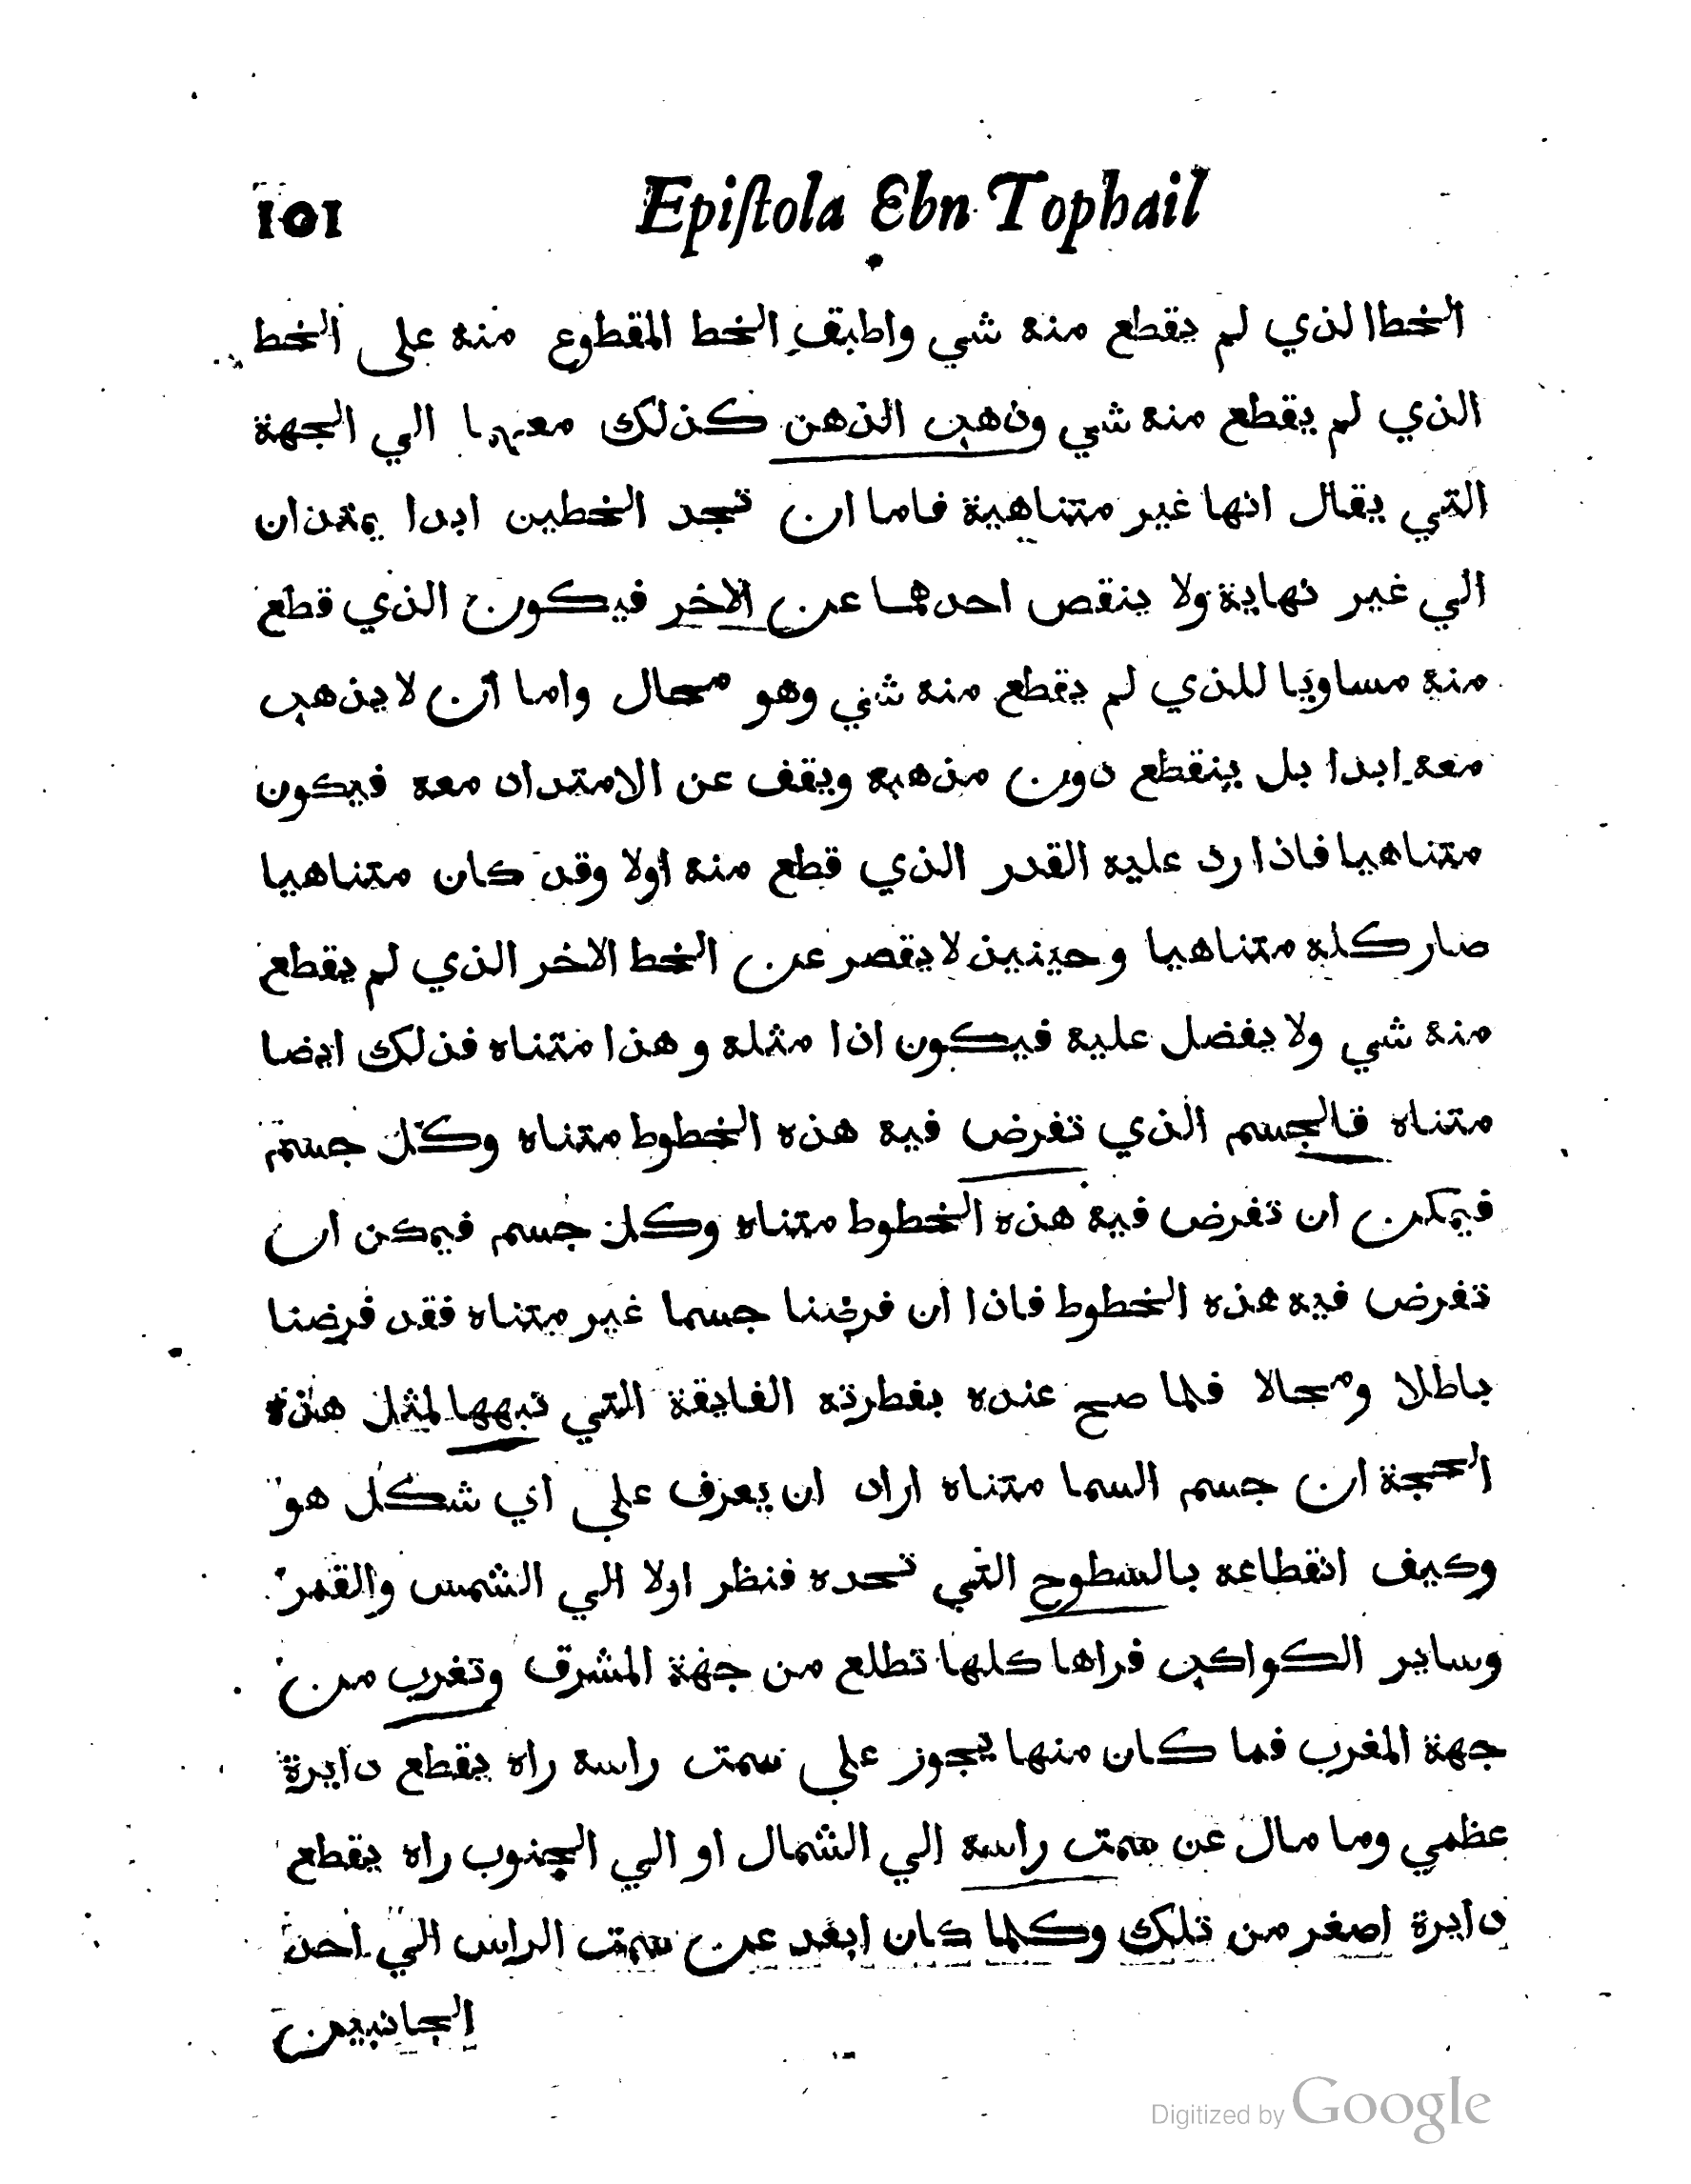 101 Epiſtola Ebn Tophail
الخط الذي لم يقطع منه شي واطبق الخط المقطوع منه على الخط
الذي لم يقطع منه شي وذهب الذهن كذلك معهما الي الجهة
التي يقال انها غير متناهية فاما ان تجد الخطين ابدا يمتدان
الي غير نهاية ولا ينقص احدهما عن الاخر فيكون الذي قطع
منه مساويا للذي لم يقطع منه شي وهو محال واما ان لا يذهب
معه ابدا بل ينقطع دون مذهبه ويقف عن الامتداد معه فيكون
متناهيا فاذا رد عليه القدر الذي قطع منه اولا وقد كان متناهيا
صار كله متناهيا وحينيذ لا يقصر عن الخط الاخر الذي لم يقطع
منه شي ولا يفضل عليه فيكون اذا مثله وهذا متناه فذلك ايضا
متناه فالجسم الذي تفرض فيه هذه الخطوط متناه وكل جسم
فيمكن ان تفرض فيه هذه الخطوط متناه وكل جسم فيمكن ان
تفرض فيه هذه الخطوط فاذا ان فرضنا جسما غير متناه فقد فرضنا
باطلا ومحالا فلما صح عنده بفطرته الفايقة التي نبهها لمثل هذه
الحجة ان جسم السما متناه اراد ان يعرف علي اي شكل هو
وكيف انقطاعه بالسطوح التي تحده فنظر اولا الي الشمس والقمر
وساير الكواكب فراها كلها تطلع من جهة المشرق وتغرب من
جهة المغرب فما كان منها يجوز علي سمت راسه راه يقطع دايرة
عظمي وما مال عن سمت راسه الي الشمال او الي الجنوب راه يقطع
دايرة اصغر من تلك وكلما كان ابعد عن سمت الراس الي احد
الجانبين
Digitized by Google